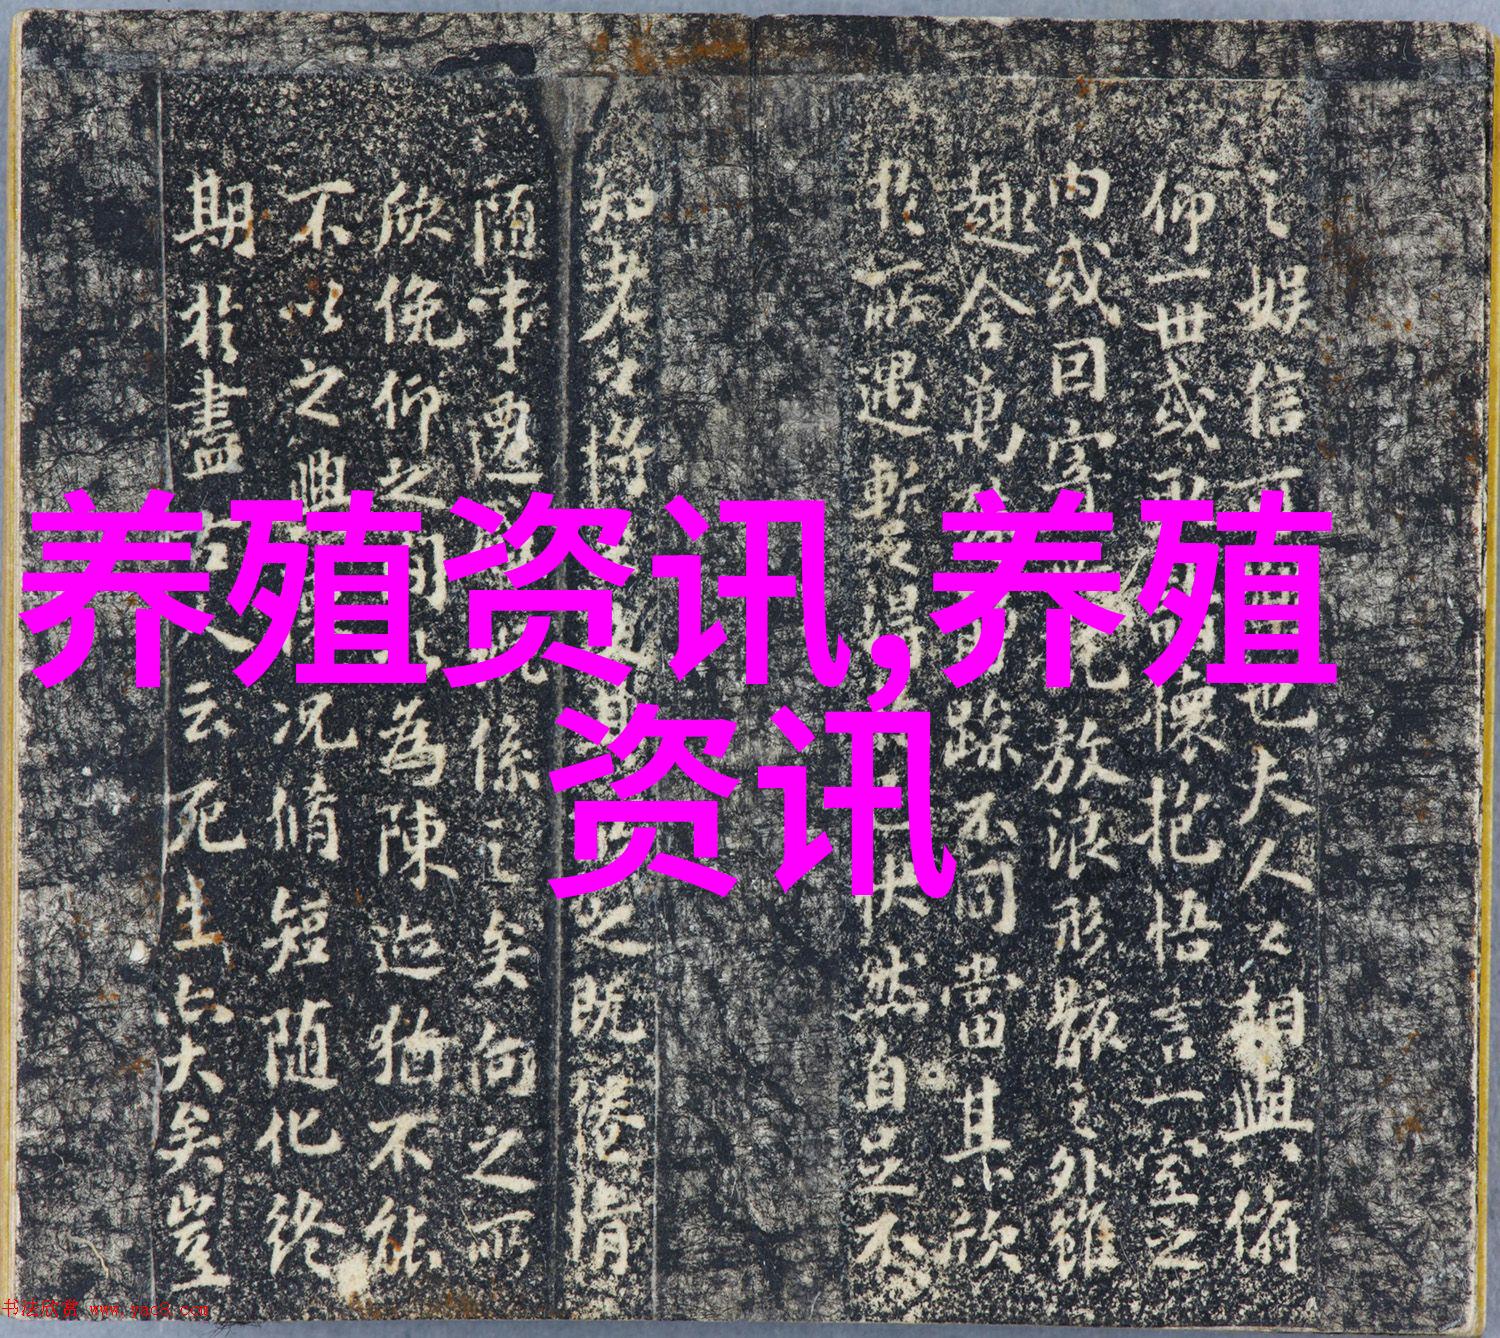 之娱信可 也夫人之相與俯
仰一世或 懷抱悟言一室之
内或因寄 放浪形骸之外雖
趣舍萬 躁不同當其欣
於所遇暫 快然自足不
知老之将 之既倦情
随事遷 係之矣向之所
欣俛仰之間 為陳迹猶不能
不以之興 况脩短随化終
期於盡 云死生亦大矣豈
养殖资讯,养殖
资讯
书法欣赏 www.yac8.com